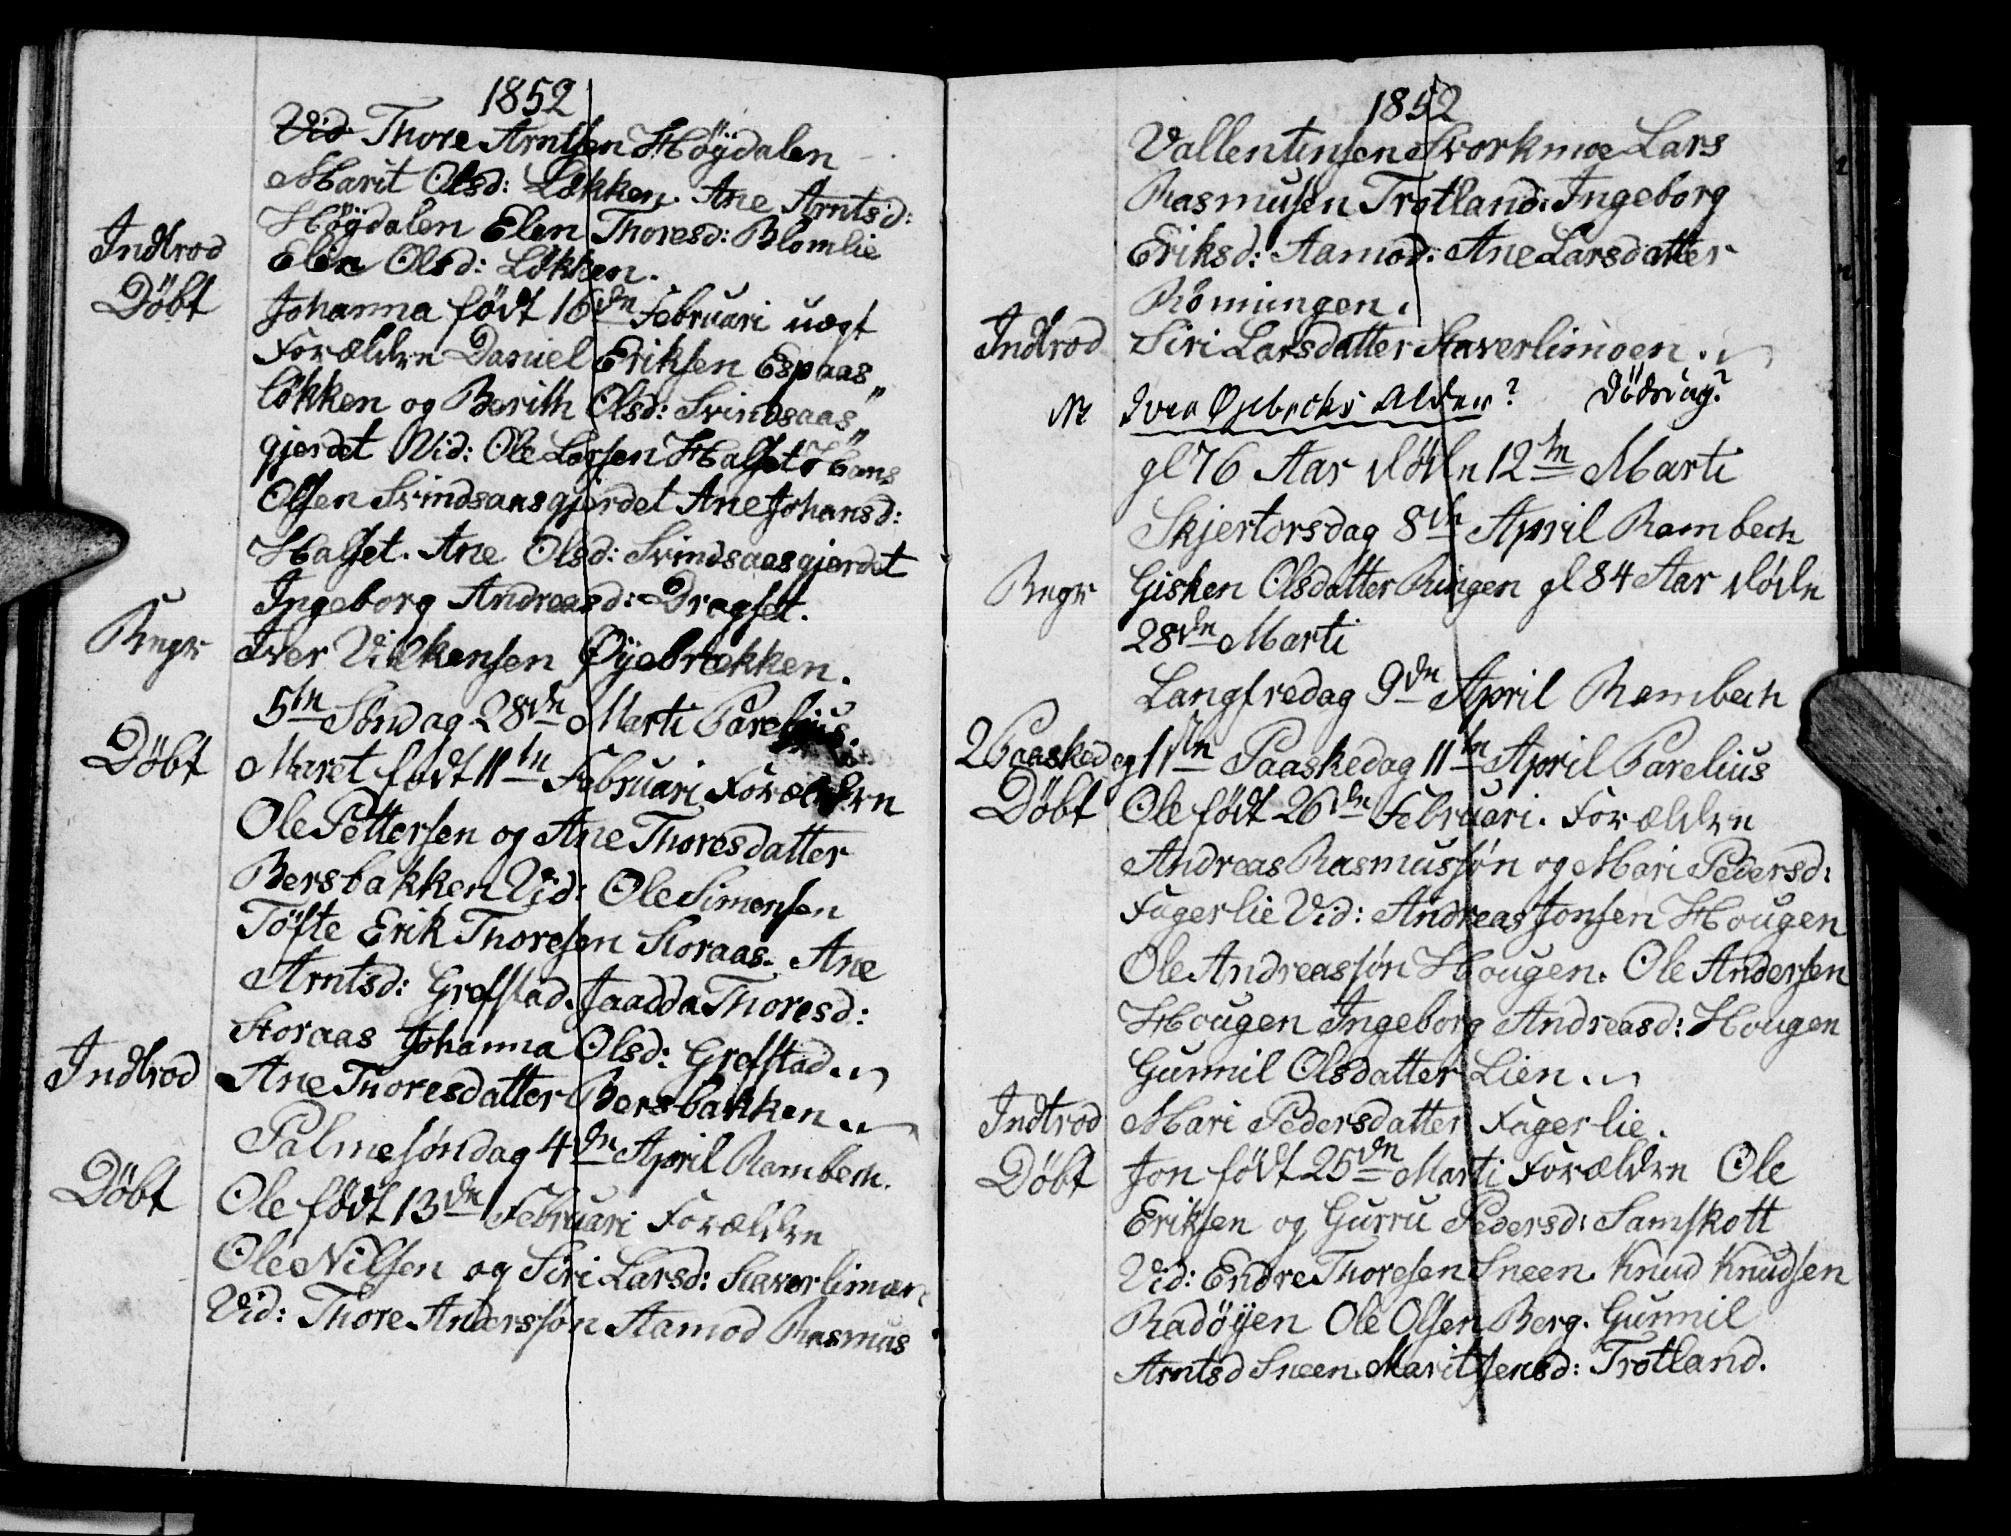 1852
Vid Thore Arntsen Höÿdalen
Marit Olsd: Løkken. Ane Arntsd:
Höÿdalen Elen Thoresd: Blomlie
Indtrod Elen Olsd: Løkken.
Döbt Johanna födt 16de Februari uægt
Forældre Daniel Eriksen Espaas„
løkken og Berith Olsd: Svindsaas„
gjerdet Vid: Ole Larsen Halset Hans
Olsen Svindsaasgjerdet Ane Johansd:
Halset. Ane Olsd: Svindsaasgjerdet
Ingeborg Andreasd: Dragset.
Begr Iver Vilkensen Øÿebrækken.
5te Søndag 28de Marti Parelius.
Döbt Maret födt 11te Februari Forældre
Ole Pettersen og Ane Thoresdatter
Bersbakken Vid: Ole Simensen
Töfte Erik Thoresen Storaas. Ane
Arntsd: Grefstad. Jaadda Thoresd:
Storaas Johanna Olsd: Grefstad.
Indtrod Ane Thoresdatter Bersbakken.
Palmesøndag 4de April Rambech.
Döbt Ole födt 13de Februari Forældre
Ole Nilsen og Siri Larsd: Staverlimoen
Vid: Thore Anderssøn Aamod Rasmus
1852
Vallentinsen Svorkmoe Lars
Rasmusen Trotland. Ingeborg
Eriksd: Aamod: Ane Larsdatter
Rönningen.
Indtrod Siri Larsdatter Staverlimoen.
Iver Øjebreks Alder? Dödsdag?
gl 76 Aar döde 12te Marti
Skjertorsdag 8de April Rambech
Begr Gisken Olsdatter Ringen gl 84 Aar döde
28de Marti
Langfredag 9de April Rambech
2 Paaskedag 1ste Paaskedag 11te April Parelius
Döbt Ole födt 26de Februari. Forældre
Andreas Rasmussøn og Mari Pedersd:
Fagerlie Vid: Andreas Jonsen Hougen
Ole Andreassøn Hougen. Ole Andersen
Hougen Ingeborg Andreasd: Hougen
Gunnil Olsdatter Lien.
Indtrod Mari Pedersdatter Fagerlie.
Döbt Jon födt 25de Marti Forældre Ole
Eriksen og Gurru Pedersd: Samskott
Vid: Endre Thoresen Sneen. Knud Knudsen
Radöÿen Ole Olsen Berg. Gunnil
Arntsd Sneen. Marit Jensd: Trotland.